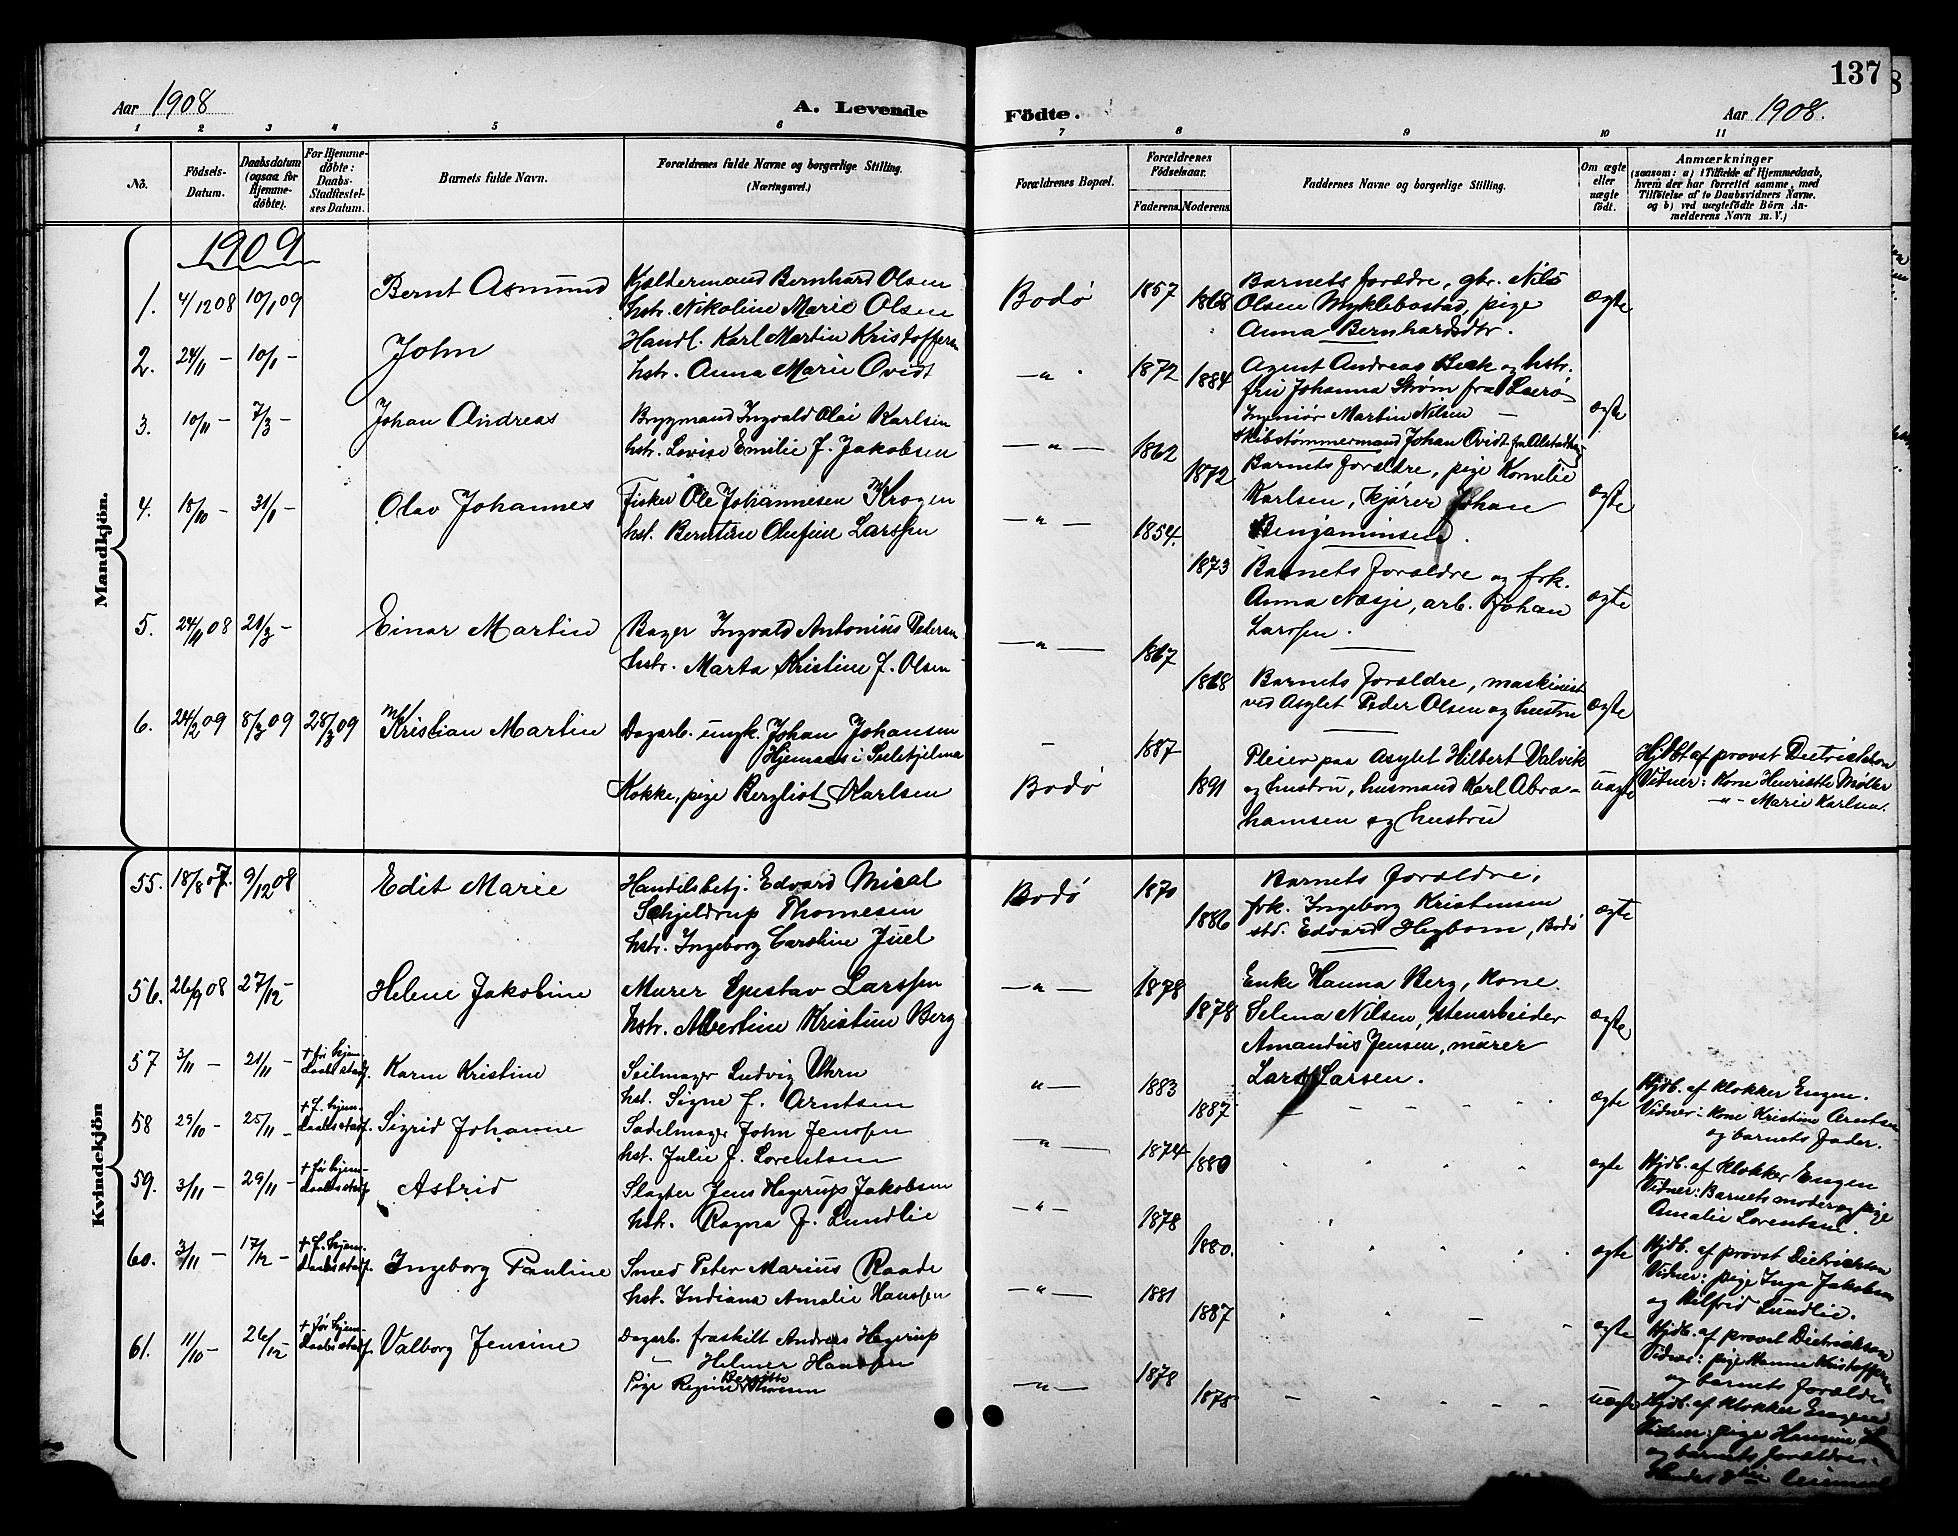 137
Aar 1908
A. Levende
Födte.
Aar 1908.
1 2 3 4 5 6 7 8 9 10 11
No.
Födsels-
Datum.
Daabsdatum
(ogsaa for
Hjemme-
döbte).
For Hjemme-
döbte:
Daabs-
Stadfæstel-
ses Datum.
Barnets fulde Navn.
Forældrenes fulde Navne og borgerlige Stilling.
(Næringsvei.)
Forældrenes Bopæl.
Forældrenes
Födselsaar.
Faderens.
Moderens.
Faddernes Navne og borgerlige Stilling.
Om ægte
eller
uægte
født.
Anmærkninger
(saasom: a) i Tilfælde af Hjemmedaab,
hvem der har forrettet samme, med
Tilföielse af to Daabsvidners Navne.
og b) ved uægtefödte Börn An-
melderens Navn m. V.)
Mandkjön.
1909
1. 4/12 08 10/1 09 Bernt Asmund
Kjældermand Bernhard Olsen
hstr. Nikoline Marie Olsen
Bodø 1857 1868
Barnets forældre, gbr. Nils
Olsen Myklebostad, pige
Anna Bernhardsdtr.
ægte
2. 24/11 — 10/1 — John
Handl. Karl Martin Kristoffersen
hstr. Anna Marie Qvidt
—"— 1872 1884
Agent Andreas Beck og hstr.
fru Johanna Strøm fra
Ingeniør Martin Nilsen —
Skibstømmermand Johan Qvidt fra Alstadhaug
ægte
3. 10/11 — 7/3 — Johan Andreas
Bryggmand Ingvald Olai Karlsen
hstr. Lovise Emilie f. Jakobsen
—"— 1862 1872
Barnets forældre, pige Kornelie
Karlsen, kjører Johan
Benjaminsen.
ægte
4. 18/10 — 31/1 — Olav Johannes
Fisker Ole Johannesen Krogen
hst. Berntine Olufine Larssen
—"— 1854. 1873
Barnets forældre og frk.
Anna Næsje, arb. Johan
Larssen.
ægte
5. 24/11 08 21/3 — Einar Martin
Bager Ingvald Antonius Petersen
hstr. Marta Kristine f. Olsen
—"— 1867 1868
Barnets forældre, maskinist
ved Asylet Peder Olsen og hustru
ægte
6. 24/2 09 8/3 09 28/3 09 Kristian Martin
Dagarb. ungk. Johan Johansen
Hjemaas i
Kokke, pige Bergliot Karlsen
Bodø 1887 1891
Pleier paa Asylet Hilbert Valvik
og hustru, husmand Karl Abra-
hamsen og hustru
uægte
Hjdbt af provst Dietrichson
Vidner: Kone Henriette Møller
—"— Marie Karlsen.
Kvindekjön
55. 18/8 07. 9/12 08 Edit Marie
Handelsbetj. Edvard Mical
Schjeldrup Thomesen
hstr. Ingeborg Caroline Juel
Bodø 1870 1886
Barnets forældre,
frk. Ingeborg Kristensen
std. Edvard Hegbom, Bodø
ægte
56. 26/9 08 27/12 — Helene Jakobine
Murer Gustav Larssen
hstr. Albertine Kristine Berg
—"— 1878 1878
Enke Hanna Berg, Kone
Selma Nilsen, stenarbeider
Amandus Jensen, murer
Lars Larsen.
ægte
57 3/11 — 21/11 — + før hjem.
daabs stadf.
Karen Kristine
Seilmager Ludvig Uhre
hst. Signe f. Arntsen
"— 1883 1887
ægte
Hjdb. af klokker Engen.
Vidner: Kone Kristine Arntsen
og barnets fader.
58 29/10 — 25/11 — + f. hjem-
daabs stadf.
Sigrid Johanne
Sadelmager John Jenssen
hst. Julie f. Lorentsen
—"— 1874 1880
ægte
Hjdb. af klokker Engen
Vidner: Barnets moder og pige
Amalie Lorentsen.
59. 3/11 — 29/11 — + før hjem-
daabs stadf.
Astrid
Slagter Jens Hagerup Jakobsen
hstr. Ragna f. Lundlie
—"— 1878 1880.
ægte
Hjdb. af provst Dietrichson
Vidner: pige Inga Jakobsen
og Hilfrid Lundlie.
60. 3/11 — 17/12 — + f. hjem.
daabs stadf.
Ingeborg Pauline
Smed Peter Marius Raade
hst. Indiana Amalie Hanssen
—"— 1881 1887
ægte
Hjdb. af provst Dietrichson
Vidner: pige Hanne Kristoffersen
og barnets forældre
61. 11/10 — 26/12 — + før hjem.
daabs stadf.
Valborg Jensine
Dagarb. fraskilt Andreas Hagerup
Helmer Hanssen
Pige Regine Bergitte Thoresen
—"— 1878 1878
uægte
Hjdb. af klokker Engen
Vidner: pige Hansine
og barnets forældre.